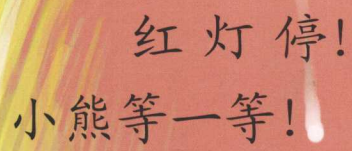 红灯停!
小熊等一等!